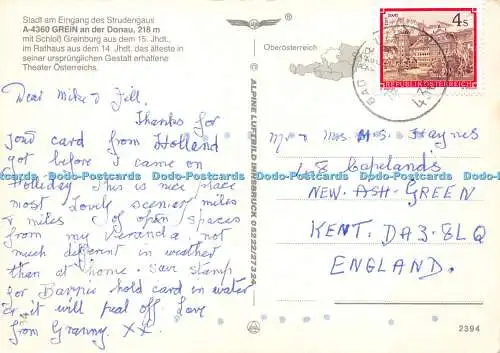 Stadt am Eingang des Strudengaus
A-4360 GREIN an der Donau, 218 m
mit Schloß Greinburg aus dem 15. Jhdt.,
im Rathaus aus dem 14. Jhdt. das älteste in
seiner ursprünglichen Gestalt erhaltene
Theater Österreichs.
Oberösterreich
4 S
REPUBLIK ÖSTERREICH
BAD
ALPINE LUFTBILD INNSBRUCK 05222/27324
Dear Mike & Jill.
Thanks for
your card from Holland
got before I came on
Holleday This is nice place
most Lovely scenier miles
& miles of open spaces
from my Veranda, not
much different in weather
than at home. Save stamp
for hold card in water
& it will peal off. Love
from Granny. XX
Mr & Mrs M. S. Haynes
Copelands
NEW-ASH-GREEN
KENT. DA3. 8LQ
ENGLAND.
2394
Dodo-Postcards Dodo-Postcards Dodo-Postcards Dodo-Postcards